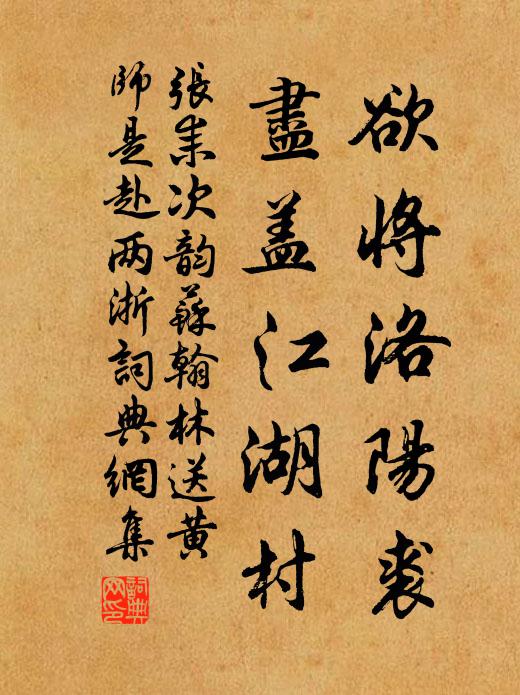 欲将洛陽裘
盡盖江湖村
張耒次韵蘇翰林送黄
師是赴两浙詞典網集
詞典网印